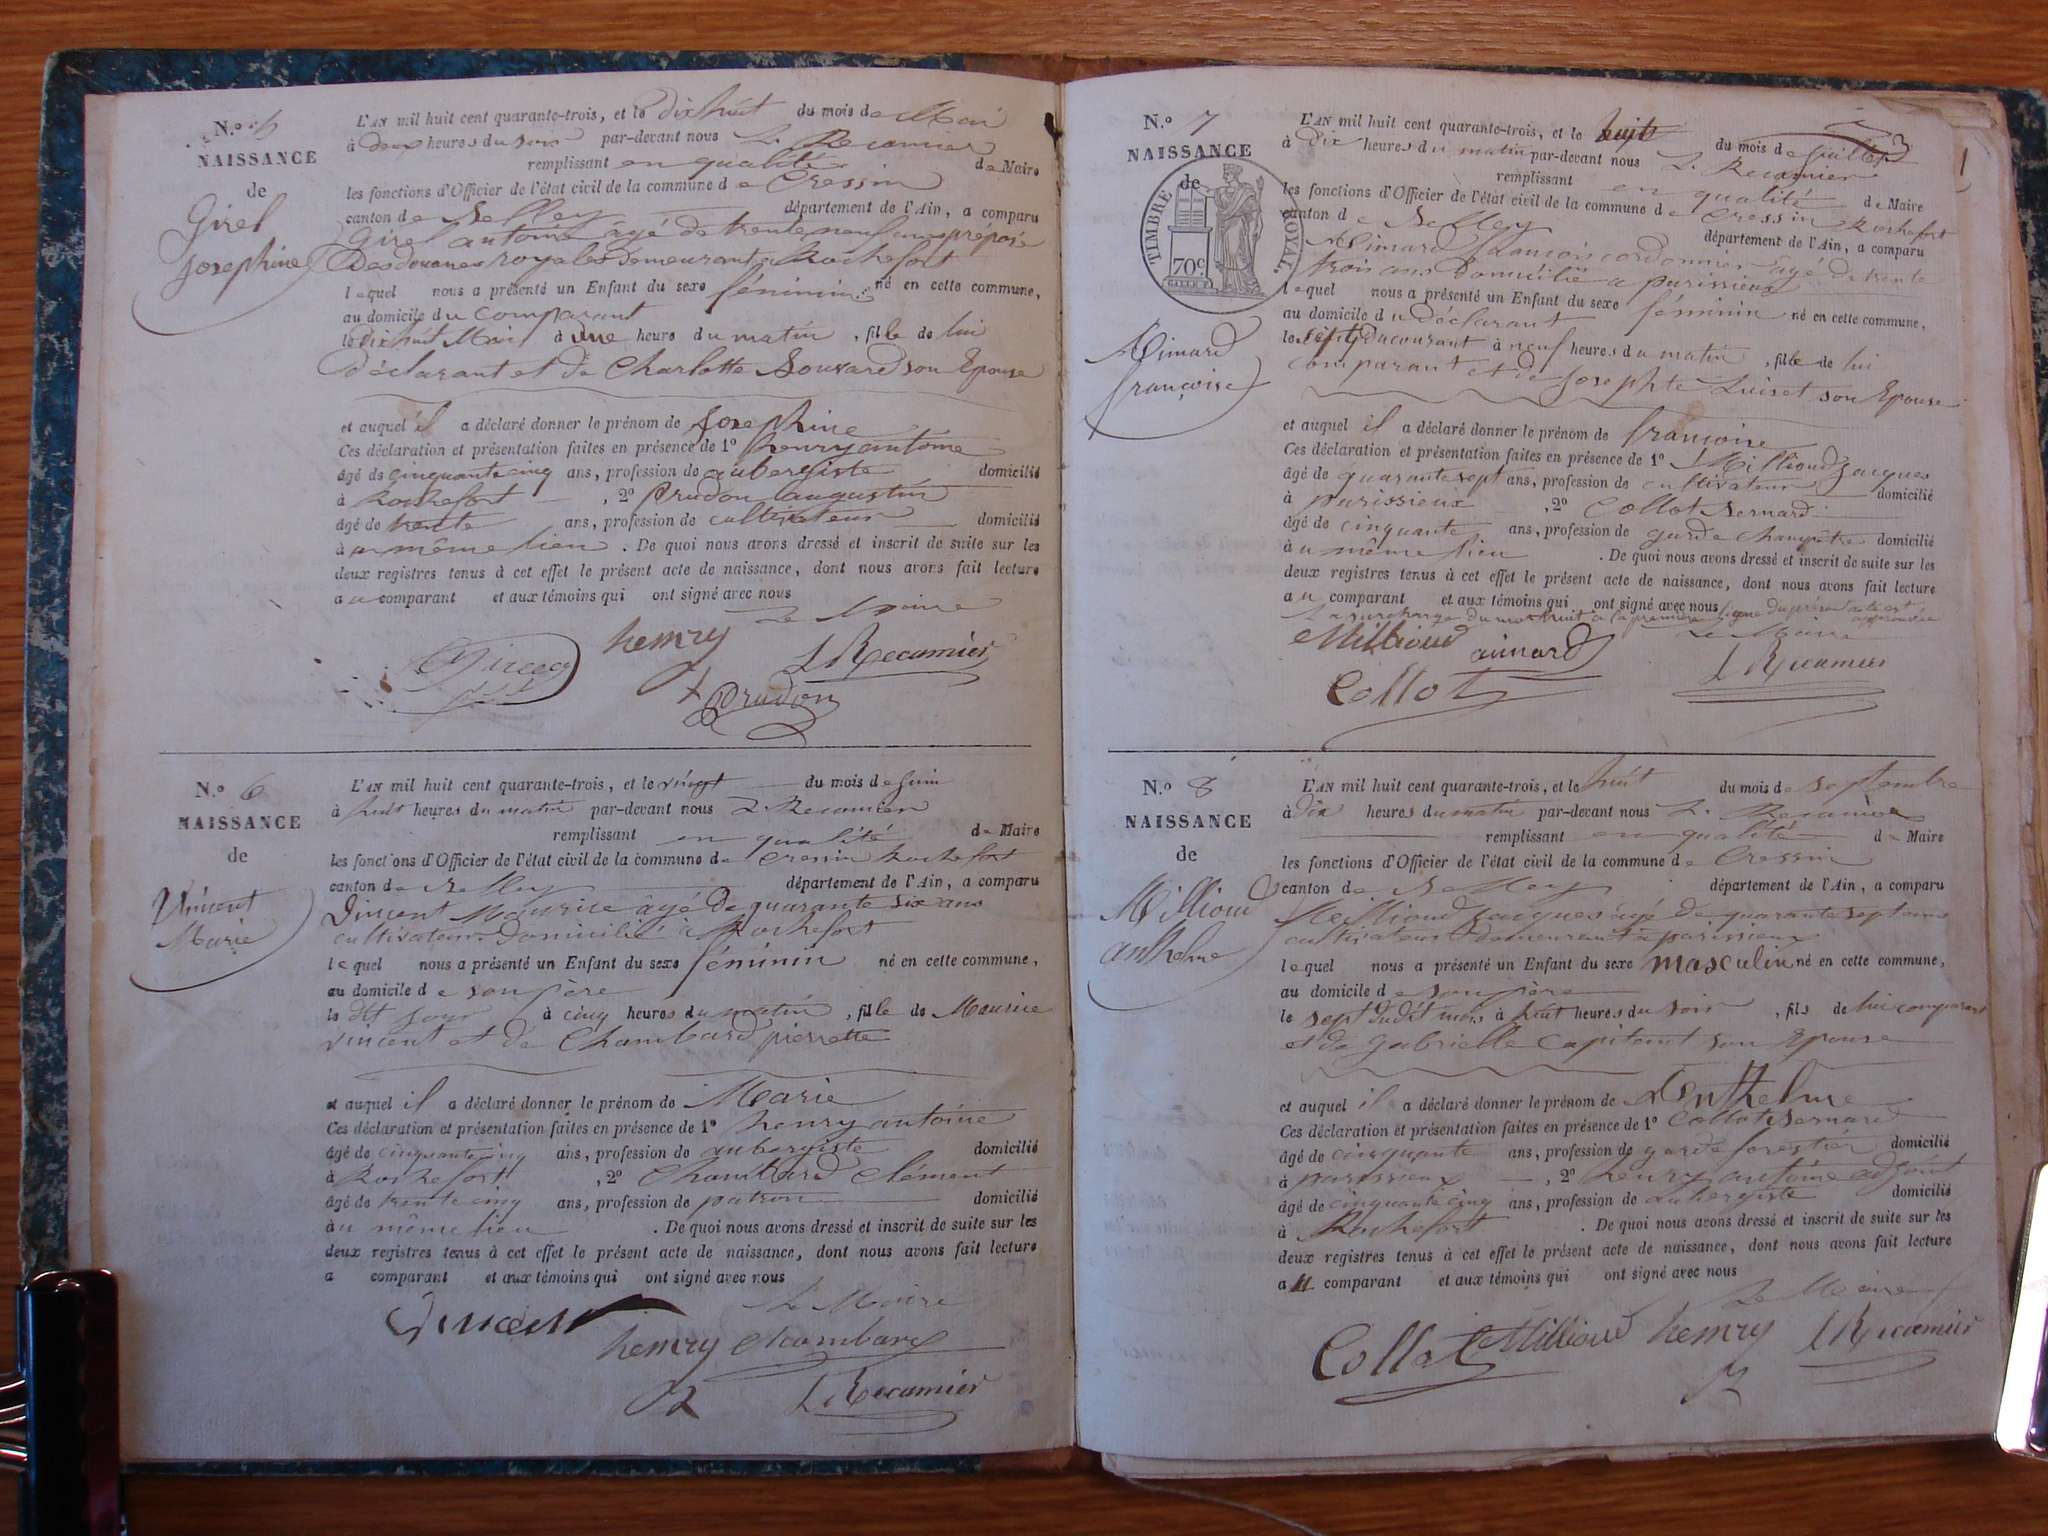 N.º 5
NAISSANCE
de
Girel
Josephine
L'AN mil huit cent quarante-trois, et le dix huit du mois de Mai
à deux heures du soir par-devant nous L. Recamier
remplissant en qualité de Maire
les fonctions d'Officier de l'état civil de la commune de Cressin
canton de Belley département de l'Ain, a comparu
Girel antoine âgé de trente neuf ans préposé
Des douanes royales demeurant a Rochefort
lequel nous a présenté un Enfant du sexe féminin né en cette commune,
au domicile du comparant
le dix huit Mai à une heure du matin, fille de lui
déclarant et de Charlotte son Epouse
et auquel il a déclaré donner le prénom de Josephine
Ces déclaration et présentation faites en présence de 1º henry antoine
âgé de cinquante cinq ans, profession de aubergiste domicilié
à Rochefort, 2º Prudon augustin
âgé de trente ans, profession de cultivateur domicilié
à u même lieu. De quoi nous avons dressé et inscrit de suite sur les
deux registres tenus à cet effet le présent acte de naissance, dont nous avons fait lecture
a u comparant et aux témoins qui ont signé avec nous
Le Maire
henry L Recamier
Prudon
N.º 6
NAISSANCE
de
Vincent
Marie
L'AN mil huit cent quarante-trois, et le vingt du mois de Juin
à huit heures du matin par-devant nous L. Recamier
remplissant en qualité de Maire
les fonctions d'Officier de l'état civil de la commune de Cressin Rochefort
canton de Belley département de l'Ain, a comparu
Vincent Maurice âgé de quarante six ans
cultivateur domicilié à Rochefort
lequel nous a présenté un Enfant du sexe féminin né en cette commune,
au domicile de son père
le dit jour à cinq heures du matin, fille de Maurice
vincent et de Chambard pierrette
et auquel il a déclaré donner le prénom de Marie
Ces déclaration et présentation faites en présence de 1º henry antoine
âgé de cinquante cinq ans, profession de aubergiste domicilié
à Rochefort, 2º Chambard Clément
âgé de trente cinq ans, profession de patron domicilié
à u même lieu. De quoi nous avons dressé et inscrit de suite sur les
deux registres tenus à cet effet le présent acte de naissance, dont nous avons fait lecture
a comparant et aux témoins qui ont signé avec nous
Le Maire
Vincent henry Chambard
L Recamier
N.º 7
NAISSANCE
de
TIMBRE ROYAL
70c
Aimard
françoise
L'AN mil huit cent quarante-trois, et le huit du mois de Juillet
à dix heures du matin par-devant nous L. Recamier
remplissant en qualité de Maire
les fonctions d'Officier de l'état civil de la commune de Cressin Rochefort
canton de Belley département de l'Ain, a comparu
Aimard françois cordonnier âgé de trente
trois ans Domicilié a parissieux
lequel nous a présenté un Enfant du sexe féminin né en cette commune,
au domicile du déclarant
le sept du courant à neuf heures du matin, fille de lui
comparant et de Josephte Luiset son Epouse
et auquel il a déclaré donner le prénom de françoise
Ces déclaration et présentation faites en présence de 1º Millioud Jacques
âgé de quarante sept ans, profession de cultivateur domicilié
à parissieux, 2º Collot Bernard
âgé de cinquante ans, profession de garde champêtre domicilié
à u même lieu. De quoi nous avons dressé et inscrit de suite sur les
deux registres tenus à cet effet le présent acte de naissance, dont nous avons fait lecture
a u comparant et aux témoins qui ont signé avec nous
La surcharge du mot huit a la première ligne du présent acte est approuvée
Le Maire
Millioud aimard L Recamier
Collot
N.º 8
NAISSANCE
de
Millioud
anthelme
L'AN mil huit cent quarante-trois, et le huit du mois de septembre
à dix heures du matin par-devant nous L. Recamier
remplissant en qualité de Maire
les fonctions d'Officier de l'état civil de la commune de Cressin
canton de Belley département de l'Ain, a comparu
Millioud Jacques âgé de quarante sept ans
cultivateur demeurant à parissieux
lequel nous a présenté un Enfant du sexe masculin né en cette commune,
au domicile de son père
le sept dudit mois à huit heures du soir, fils de lui comparant
et de gabrielle capitant son Epouse
et auquel il a déclaré donner le prénom de Anthelme
Ces déclaration et présentation faites en présence de 1º Collot Bernard
âgé de cinquante ans, profession de garde forestier domicilié
à parissieux, 2º henry antoine adjoint
âgé de cinquante cinq ans, profession de aubergiste domicilié
à Rochefort. De quoi nous avons dressé et inscrit de suite sur les
deux registres tenus à cet effet le présent acte de naissance, dont nous avons fait lecture
a u comparant et aux témoins qui ont signé avec nous
Le Maire
Collot Millioud henry L Recamier